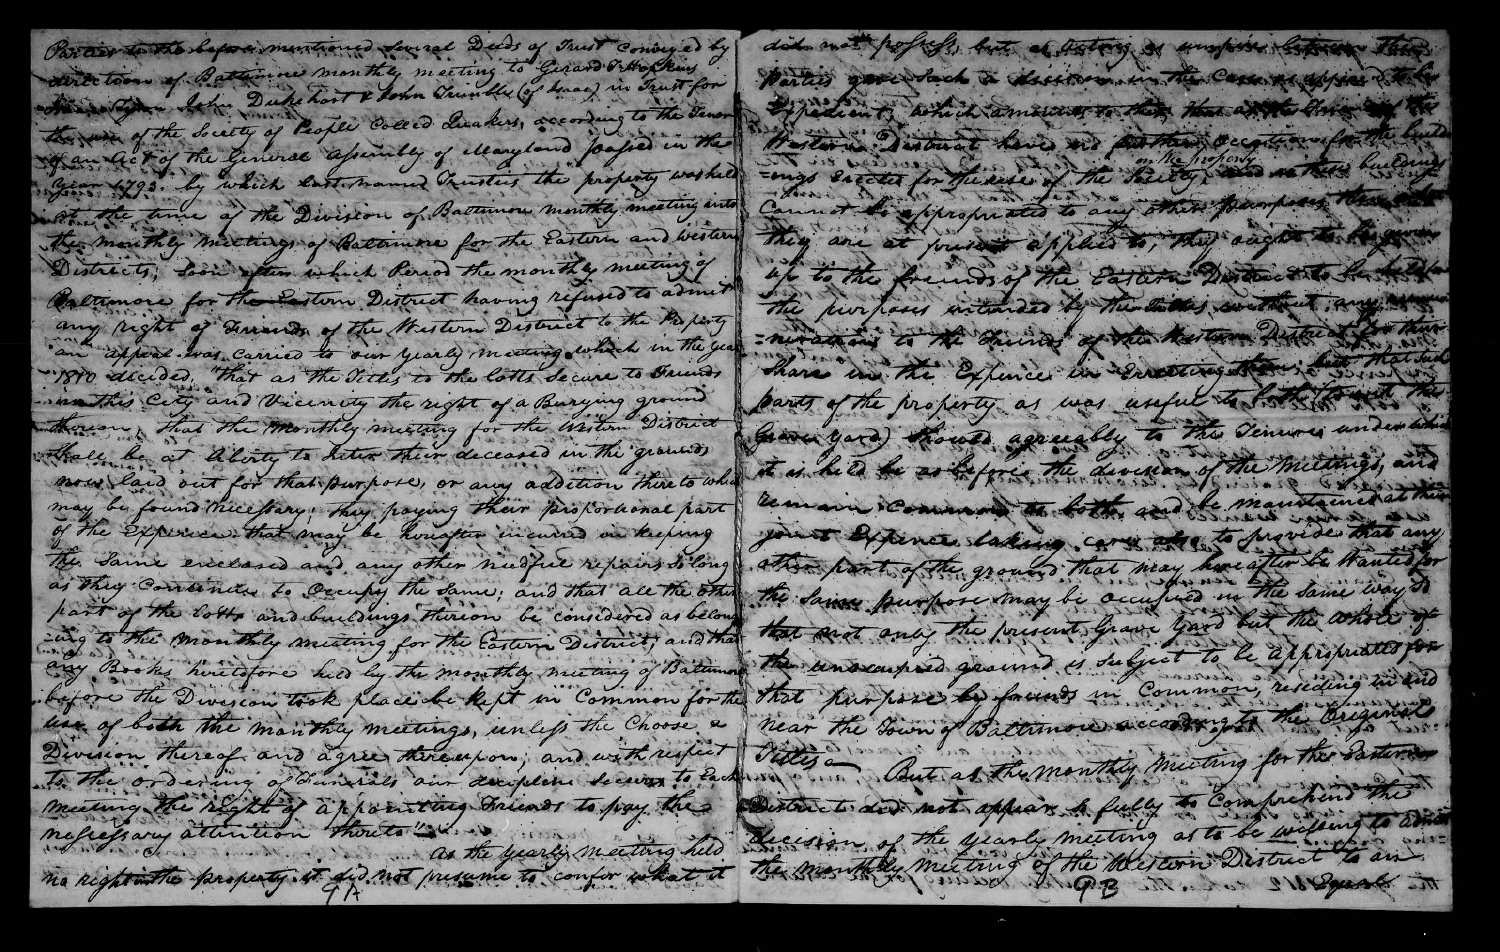 Parties to the before mentioned several Deeds of Trust conveyed by
direction of Baltimore monthly meeting to Gerard T. Hopkins
John Dukehart & John Trimble (of Isaac) in Trust for
the use of the Society of People Called Quakers, according to the Tenor
of an Act of the General Assembly of Maryland passed in the
year 1793. by which last named Trustees the property was held
at the time of the Division of Baltimore monthly meeting into
the monthly meetings of Baltimore for the Eastern and western
Districts; soon after which Period the monthly meeting of
Baltimore for the Eastern District having refused to admit
any right of Friends of the Western District to the Property
an appeal was carried to our yearly meeting which in the year
1810 decided, "that as the Titles to the lotts secure to Friends
in this City and Vicinity the right of a Burying ground
thereon, that the monthly meeting for the Western District
shall be at liberty to Inter their deceased in the grounds
now laid out for that purpose, or any addition thereto which
may be found necessary; they paying their proportional part
of the Expence that may be hereafter incurred in keeping
the same enclosed and any other needful repairs so long
as they Continue to Occupy the same; and that all the other
part of the lotts and buildings thereon be considered as belong
=ing to the monthly meeting for the Eastern District; and that
any Books heretofore held by the monthly meeting of Baltimore
before the Division took place be kept in Common for the
use of both the monthly meetings, unless the Choose a
Division thereof and agree thereupon; and with respect
to the ordering of Funerals our discipline secures to Each
meeting the right of appointing Friends to pay the
nessessary attention thereto"
As the yearly Meeting held
no right in the property it did not presume to confer what it
9A
did not possess, but as acting as umpire between the
parties gave such a decision in the Case as appeared to be
Expedient, which amounts to this, that as the
Western District have no further occasion for the build
on the property
=ings Erected for the use of the Society, and as these buildings
Cannot be appropriated to any other purposes than
they are at present applied to, they ought to be given
up to the friends of the Eastern District to be held for
the purposes intended by the Titles without any remu
=nerations to the Friends of the Western District for their
share in the Expence in Errecting them; but that such
parts of the property as was useful to both (to wit the
Grave Yard) should agreeably to the Tenure under which
it is held be as before the division of the Meetings, and
remain common to both, and be maintained at their
joint Expence taking care also to provide that any
other part of the ground that may hereafter be Wanted for
the same purpose may be occupied in the same way so
that not only the present Grave Yard but the whole of
the unoccupied ground is subject to be appropriated for
that purpose by friends in Common, residing in and
near the Town of Baltimore according to the Original
Titles
But as the monthly meeting for the Eastern
District did not appear so fully to Comprehend the
decision of the yearly meeting as to be willing to admit
the monthly meeting of the Western District to an
Equal
9B